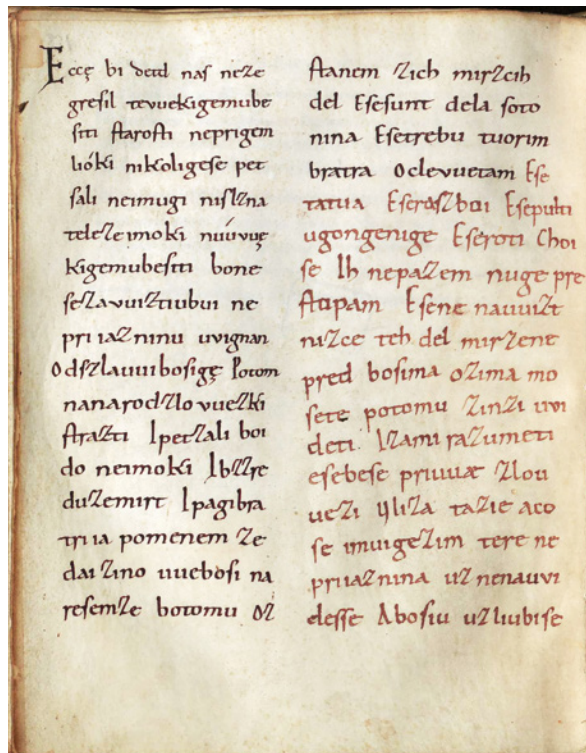 Eccę bi detd naſ neze
greſil tevuekigemube
ſiti ſtaroſti neprigem
lióki nikoligeſe pet
ſali neimugi niſlzna
teleze imoki núúvuę
kigemubeſiti bone
ſezavuiztiubui ne
pri iazninu uvignan
Odſzlauuibosigę Potom
nanarodzlovuezki
ſtrazti Ipetzali boi
do neimoki Ibzzre
duzemirt Ipagibra
tri ia pomenem ze
dai zino uuebosi na
reſemze botomu oz
ſtanem zich mirzcih
del Eſeſunt dela ſoto
nina Eſetrebu tuorim
bratra Oclevuetam Eſe
tatua Eſeraszboi Eſepulti
ugongenige Eſeroti Choi
ſe Ih nepazem nuge pre
ſtupam Eſene nauuizt
nizce teh del mirzene
pred bosima ozima mo
ſete potomu zinzi uvi
deti Izami razumeti
eſebeſe priuuæ zlou
uezi Uliza tazie aco
ſe imuigezim tere ne
pri iaznina uz nenauvi
deſſe Aboſiu uzliubiſe